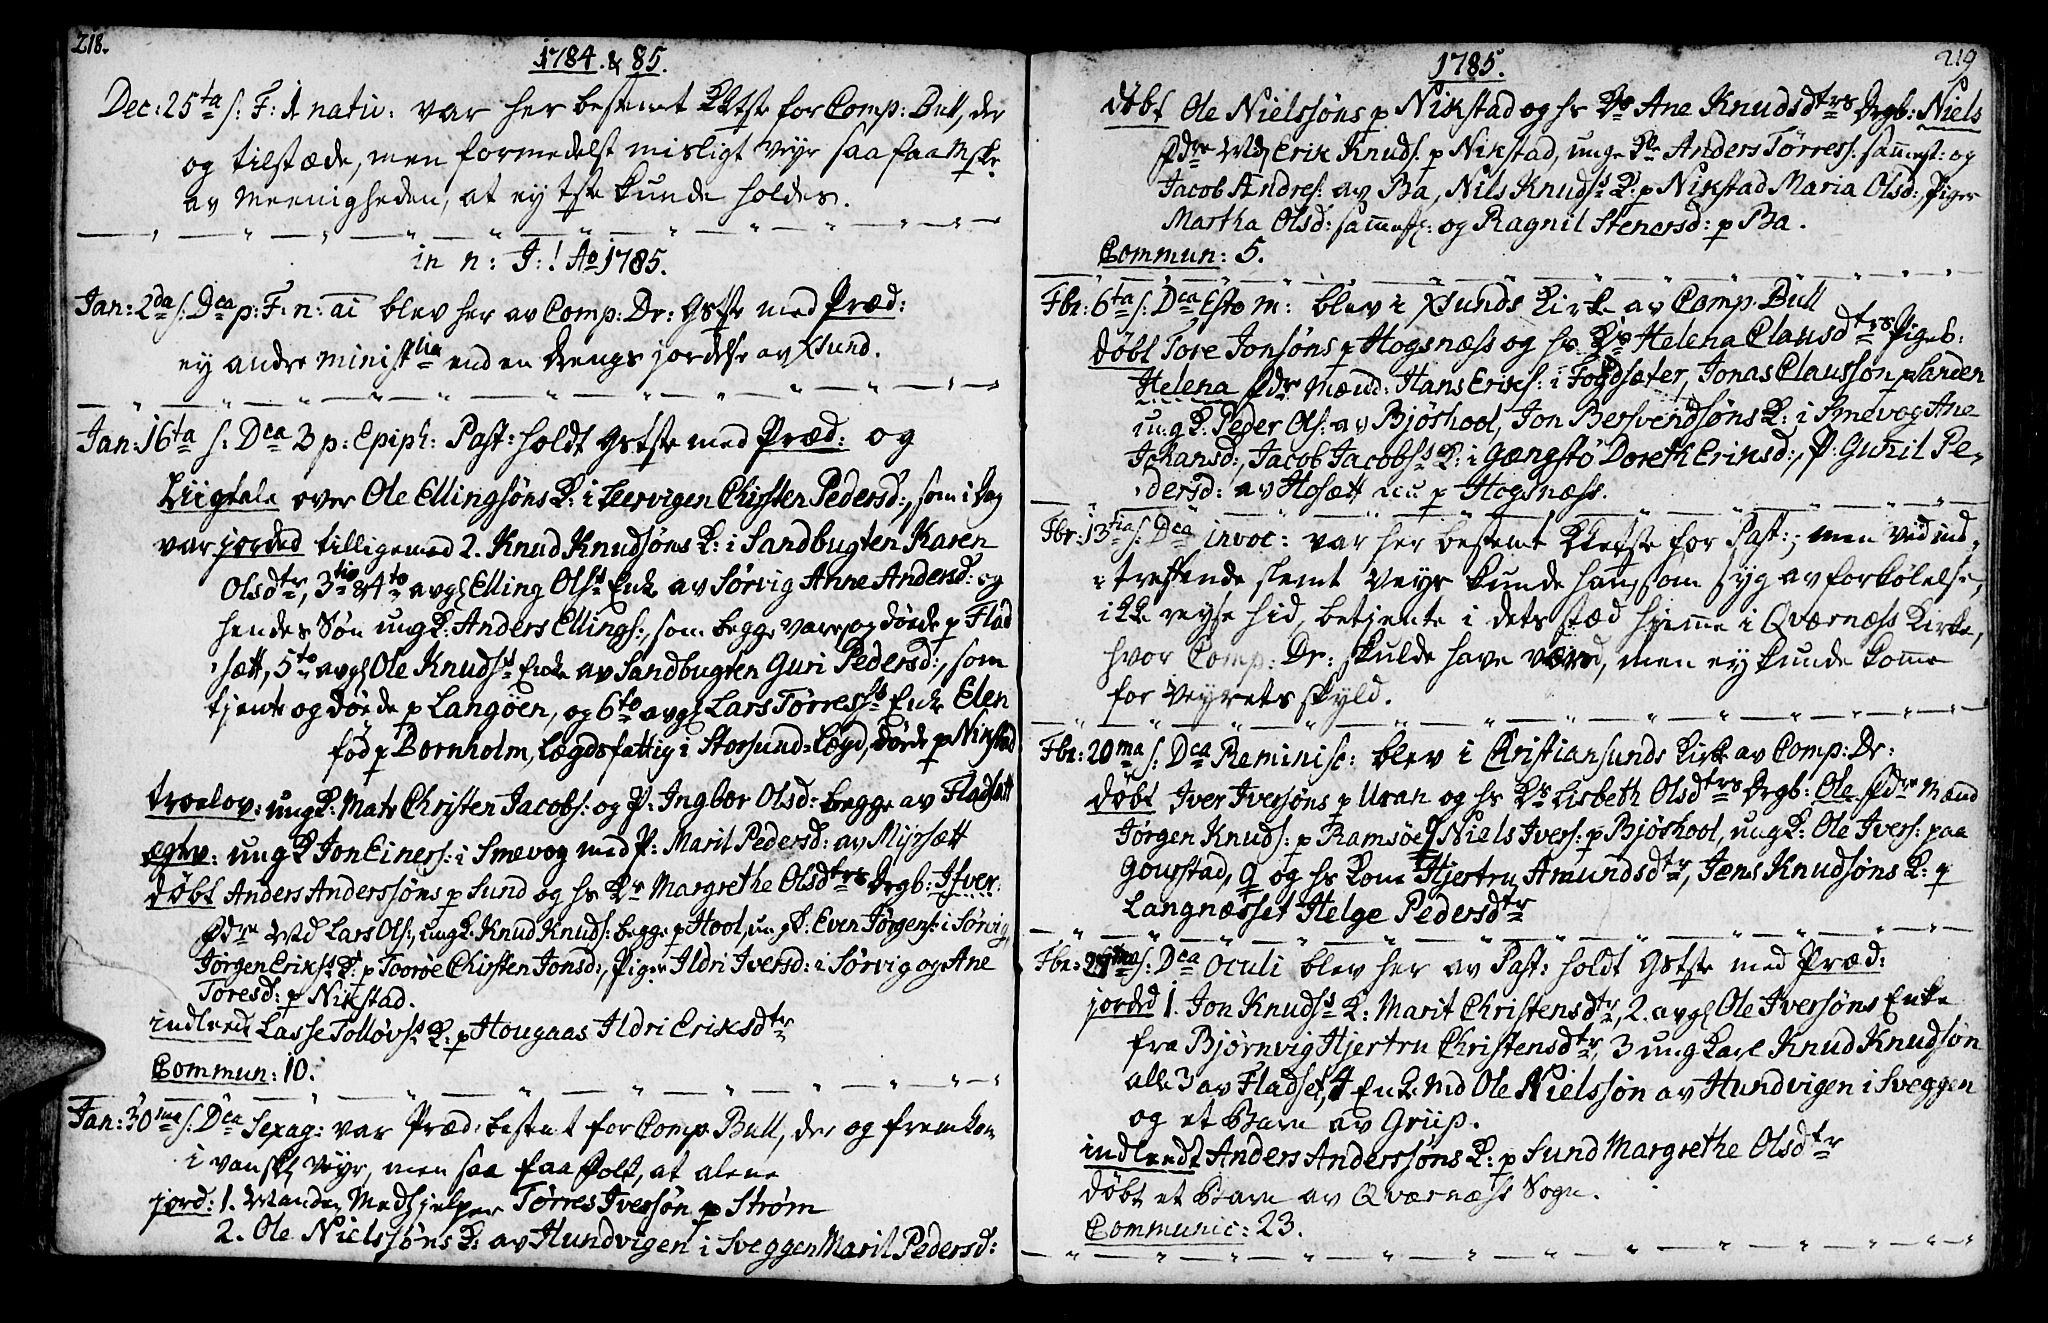 218.
1784. & 85.
Dec: 25ta s: F: 1 nativ: var her bestemt for Comp: Bull, der
og tilstæde, men formedelst misligt Veyr saa faa Mske
av Meenigheden, at ey tste kunde holdes.
in n: J:! Ao 1785.
Jan: 2da s: Dca p: F: n: ai blev her av Comp: Dr: Gstste med Præd:
ey andre minist lia end en Drengs jordelse av Xsund.
Jan: 16ta s: Dca 3 p: Epiph: Past: holdt Gstste med Præd: og
Liigtale over Ole Ellingsøns K: i Leervigen Chirsten Pedersd:, som i Dag
var jorded tilligemed 2. Knud Knudsøns K: i Sandbugten Karen
Olsdtr, 3tio & 4to avgl Elling Ols: Enke av Sørvig Anne Andersd: og
hendes Søn ung K: Anders Ellings:, som begge vare og døede p Flad
sætt, 5to avgl Ole Knuds Enke av Sandbugten Guri Pedersd:, som
tjente og døede p Langøen, og 6to avgl Lars Tørress Enke Elen
fød p Bornholm, Lægdsfattig i Storsund-Lægd, døde p Nikstad
troelov: ung K: Mats Christen Jacobs: og P: Ingbor Olsd: begge av Fladsætt
egtev: ung K Jon Einers: i Smevog med P: Marit Pedersd: av Myrsætt
døbt Anders Anderssøns p Sund og hs Ks Margrethe Olsdtrs Drgb: Ifver.
Fdre Md Lars Ols:, ung K: Knud Knuds: begge p Hool, ung K: Even Jørgens: i Sørvig,
Jørgen Erikss K: p Toorøe Chirsten Jonsd:, Piger Ildri Iversd: i Sørvig og Ane
Toresd: p Nikstad.
indleedt Lasse Tolløvs K: p Hougaas Ildri Eriksdtr
Commun: 10.
Jan: 30ma s: Dca Sexag: var Præd: bestemt for Comp Bull, der og fremkom
i vanskl Veyr, men saa faa Folk, at alene
jord: 1. Manden Medhjelper Tørres Iversøn p Strøm
2. Ole Nielssøns K: av Hundvigen i Sveggen Marit Pedersd:
1785.
219
døbt Ole Nielssøns p Nikstad og hs Ks Ane Knudsdtrs Drgb: Niels
Fdre Md Erik Knuds: p Nikstad, unge Anders Tørres: sammest: og
Jacob Andres: av Ba, Nils Knudss K: p Nikstad Maria Olsd:, Piger
Martha Olsd: sammest: og Ragnil Stenersd: p Ba.
Commun: 5.
Fbr: 6ta s: Dca Esto m: blev i Xsunds Kirke av Comp: Bull
døbt Tore Jonsøns p Hogsnæss og hs Ks Helena Clausdtrs Pigeb:
Helena Fdre Mænd: Hans Eriks: i Fogdsæter, Jonas Claussøn p Sanden
ung K: Peder Ols: av Bjøshool, Jon Bersvendsøns K: i Smevog Ane
Johansd:, Jacob Jacobss K: i Gængstø Doreth Eriksd:, P: Gunil Pe-
dersd: av Hosætt nu p Hogsnæss.
Fbr: 13tia s: Dca invoc: var her bestemt for Past:; men ved ind-
treffende slemt Veyr kunde han, som syg av forkølelse,
ikke reyse hid, betjente i dets stæd hjemme i Qværnæss Kirke,
hvor Comp: Dr: skulde have været, men ey kunde komme
for Veyrets skyld.
Fbr: 20ma s: Dca Reminisc: blev i Christiansunds Kirke av Comp: Dr:
døbt Iver Iversøns p Uran og hs Ks Lisbeth Olsdtrs Drgb: Ole. Fdre Mænd
Jørgen Knuds: p Ramsøe, Niels Ivers: p Bjøshool, ung K: Ole Ivers: paa
Gourstad, Q og hs Kone Hjertru Amundsdtr, Jens Knudsøns K: p
Langnæsset Helge Pedersdtr
Fbr: 27ma s: Dca Oculi blev her av Past: holdt Gstste med Præd:
jorded 1. Jon Knudss K: Marit Christensdtr, 2. avgl Ole Iversøns Enke
fra Bjørnvig Hjertru Christensdtr, 3 ung Karl Knud Knudsøn
alle 3 av Fladset, 4 Enkemd Ole Nielssøn av Hundvigen i Sveggen
og et Barn av Griip.
indleedt Anders Anderssøns K: p Sund Margrethe Olsdtr
døbt et Barn av Qværnæss Sogn.
Communic: 23.